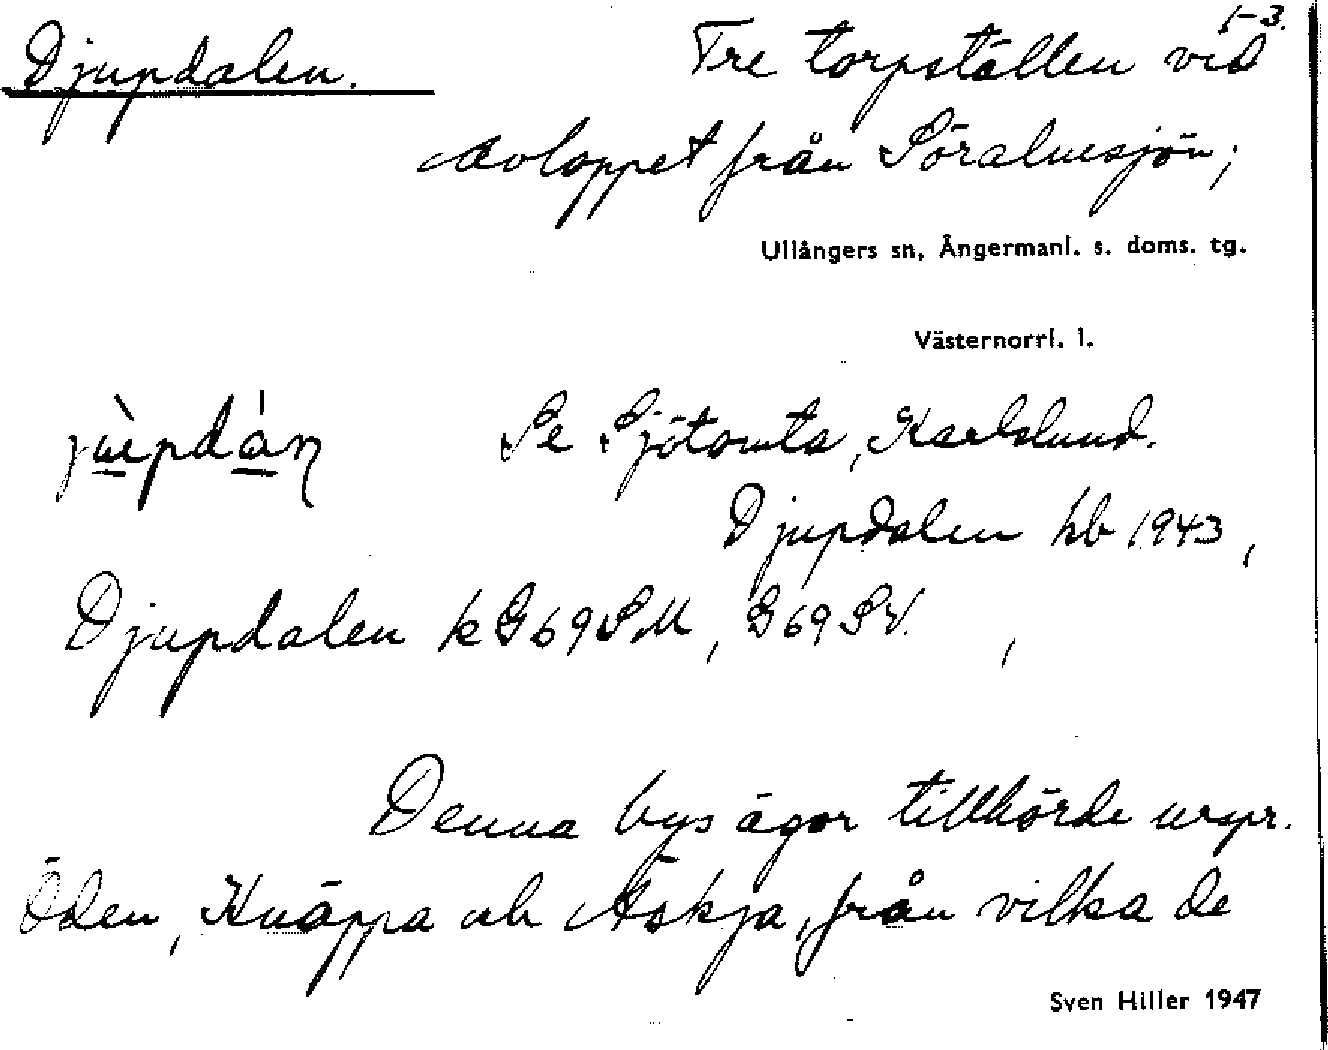 1-3.
Djupdalen. Tre torpställen vid
Avloppet från Söralnesjön;
Ullångers sn, Ångermanl. s. doms. tg.
Västernorrl. l.
jùpdáɳ Se Sjötomta, Karlslund.
Djupdalen hb 1943,
Djupdalen k G69SM, G69SV. ,
Denna bys ägor tillhörde urspr.
Öden, Knäppa och Äskja, från vilka de
Sven Hiller 1947